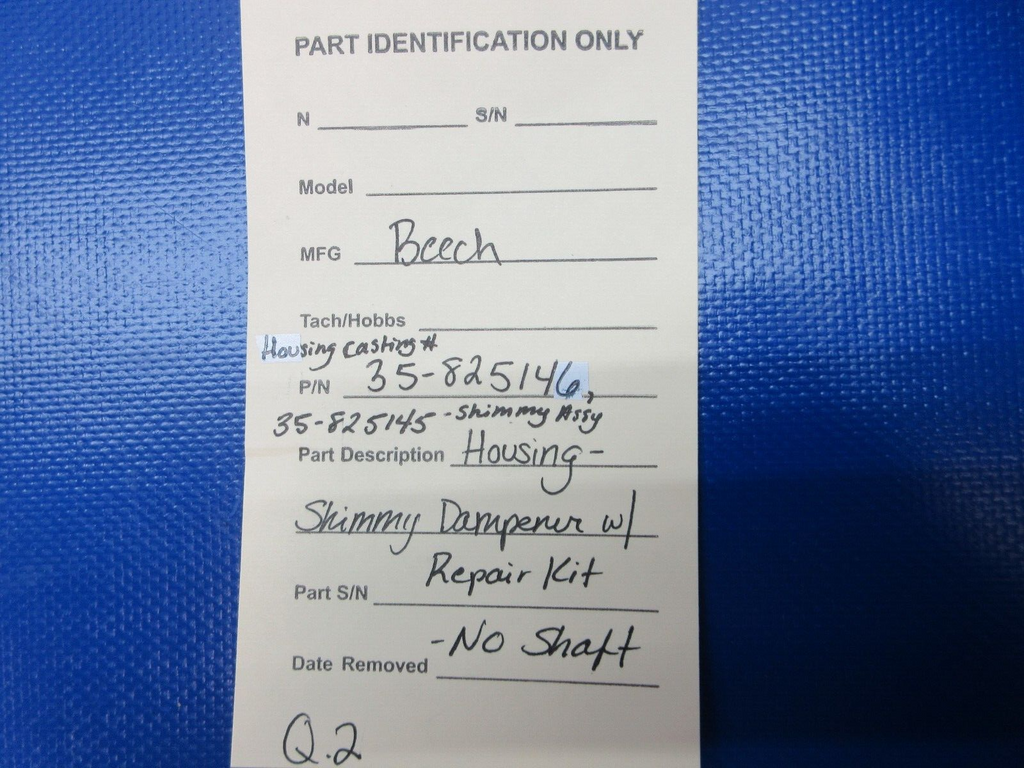 PART IDENTIFICATION ONLY
N S/N
Model
MFG Beech
Tach/Hobbs
Housing Casting #
P/N 35-825146,
35-825145 - Shimmy Assy
Part Description Housing-
Shimmy Dampener w/
Repair Kit
Part S/N
-No Shaft
Date Removed
Q.2